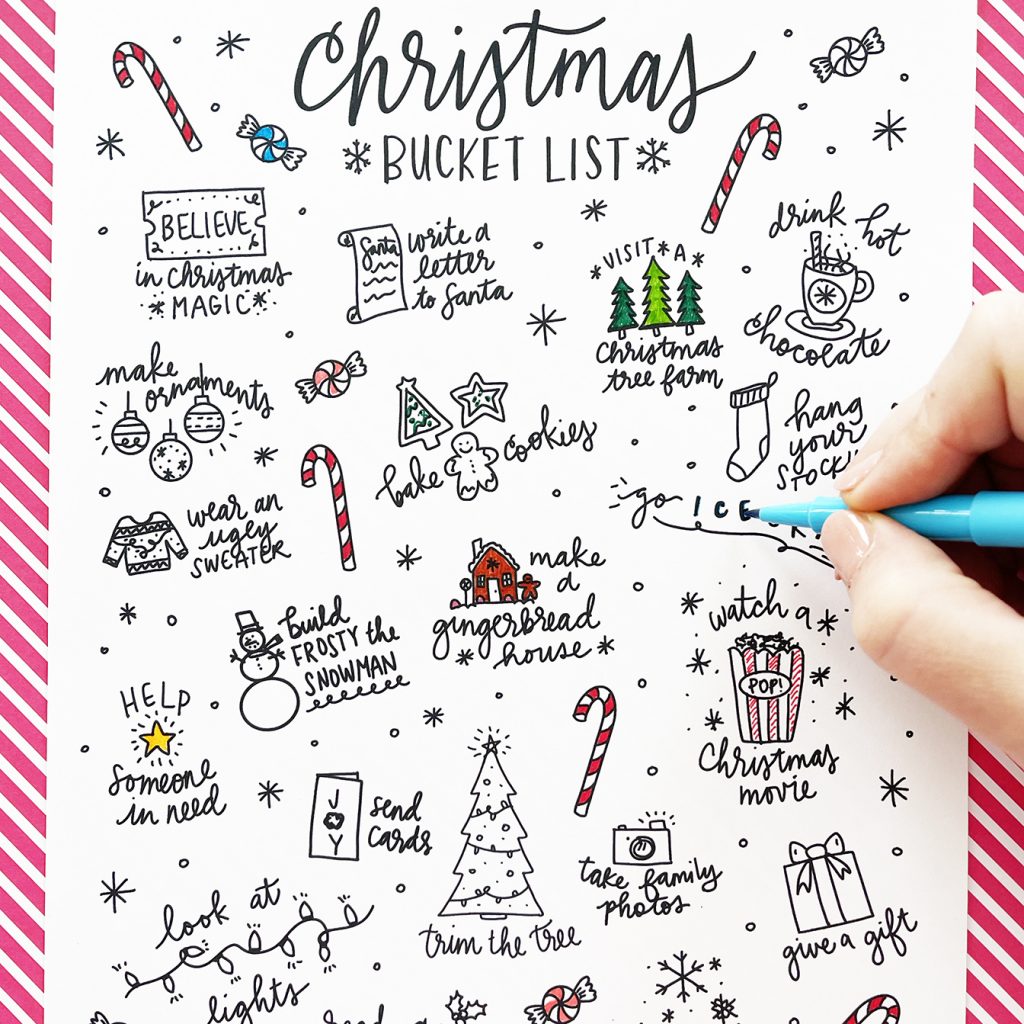 Christmas
BUCKET LIST
BELIEVE
in Christmas
MAGIC
Santa
write a
letter
to Santa
VISIT A
Christmas
tree farm
drink hot
chocolate
make
ornaments
bake cookies
hang
your
go ICE
wear an
ugly
SWEATER
make
a
gingerbread
house
build
FROSTY the
SNOWMAN
watch a
POP!
Christmas
movie
HELP
someone
in need
J
Y
send
cards
trim the tree
take family
photos
give a gift
look at
lights